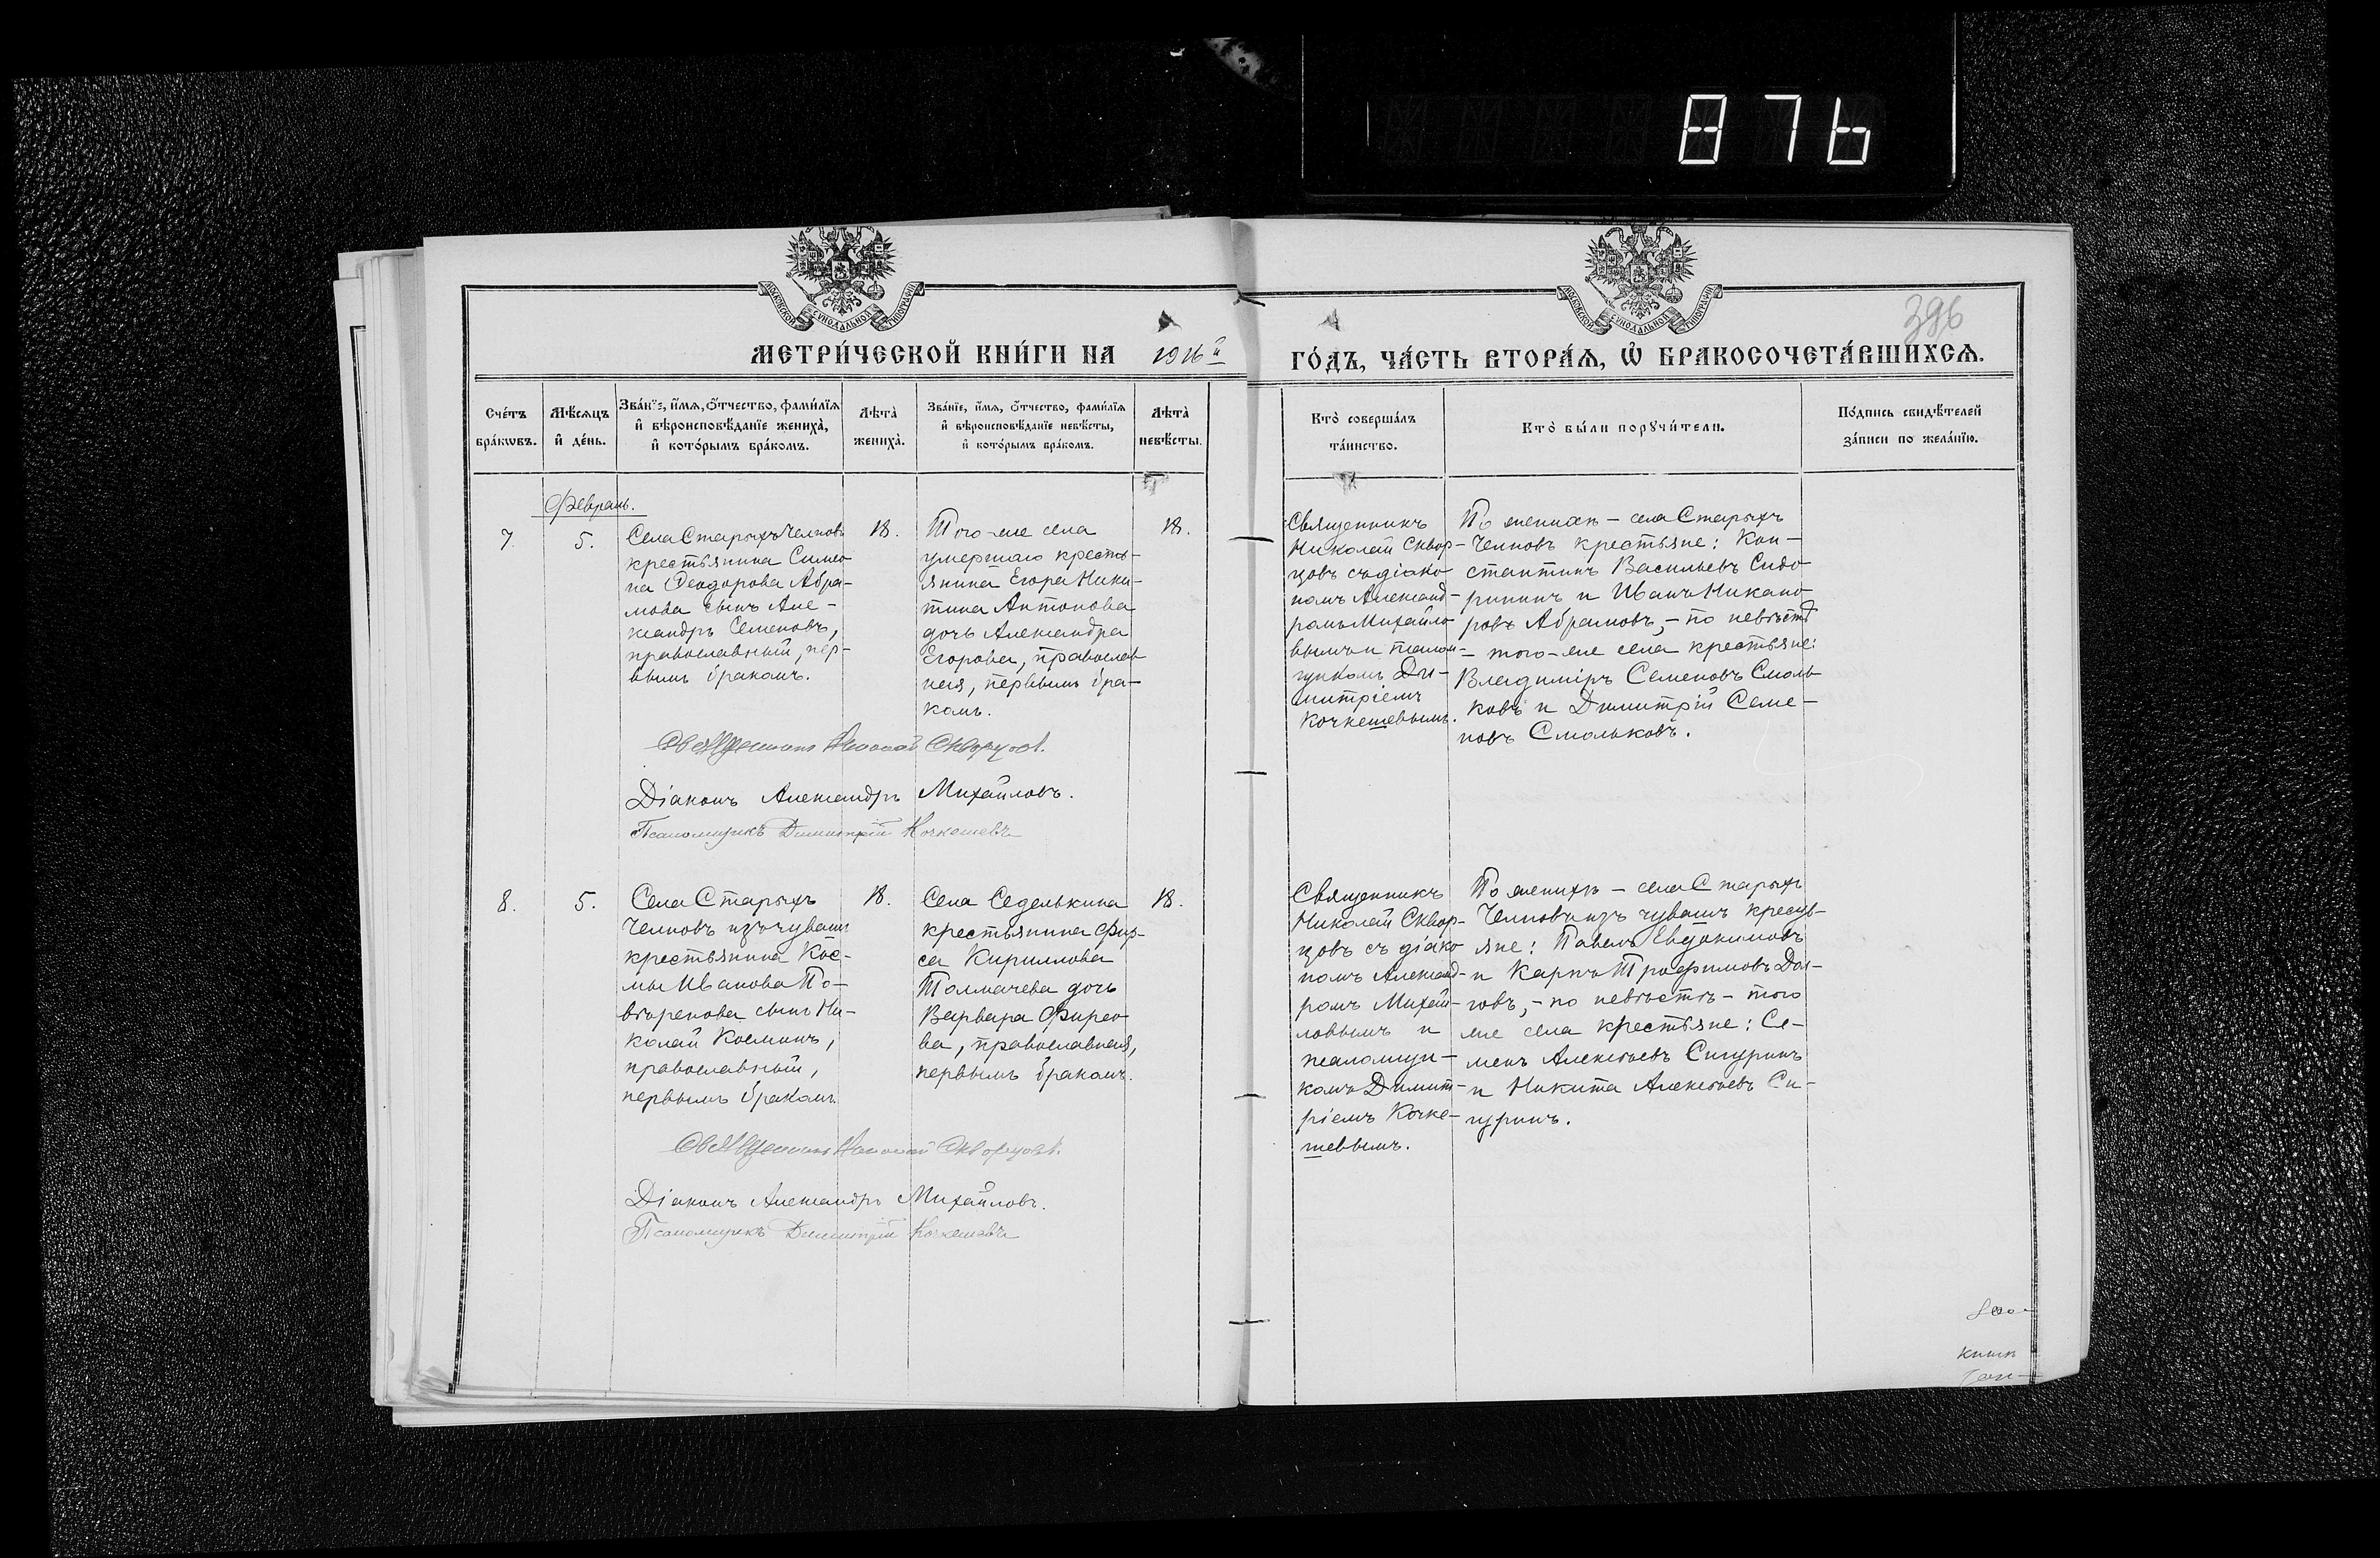 876
396
МОСКОВСКОЙ СѴНОДАЛЬНОЙ ТИПОГРАФІИ
МОСКОВСКОЙ СѴНОДАЛЬНОЙ ТИПОГРАФІИ
МЕТРИ́ЧЕСКОЙ КНИ́ГИ НА 1916й
ГО́ДЪ, ЧА́СТЬ ВТОРА́Ѧ, Ѽ БРАКОСОЧЕТА́ВШИХСѦ.
Сче́тъ
бра́кѡвъ.
Мѣ́сяцъ
и҆ де́нь.
Зва́нїе, и҆́мѧ, ѻ҆́тчество, фами́лїѧ
и҆ вѣроисповѣ́данїе жениха̀,
и҆ кото́рымъ бра́комъ.
Лѣта̀
жениха̀.
Зва́нїе, и҆́мѧ, ѻ҆́тчество, фами́лїѧ
и҆ вѣроисповѣ́данїе невѣ́сты,
и҆ кото́рымъ бра́комъ.
Лѣта̀
невѣ́сты.
Кто̀ соверша́лъ
та́инство.
Кто̀ бы́ли порꙋчи́тели.
По́дпись свидѣ́телей
за́писи по жела́нїю.
Февраль.
7.
5.
Села Старыхъ Челновъ
крестьянина Симео
на Ѳеодорова Абра-
мова сынъ Але-
ксандръ Семеновъ,
православный, пер-
вымъ бракомъ.
18.
Того-же села
умершаго кресть-
янина Егора Ники-
тина Антонова
дочь Александра
Егорова, православ
ная, первымъ бра-
комъ.
18.
Священникъ
Николай Сквор-
цовъ съ діако
номъ Александ-
ромъ Михайло
вымъ и псалом-
щикомъ Ди-
митріемъ
Кочкешевымъ.
По женихѣ – села Старыхъ
Челновъ крестьяне: Кон-
стантинъ Васильевъ Сидо
ринъ и Иванъ Никано
ровъ Абрамовъ, – по невѣстѣ
– того-же села крестьяне:
Владиміръ Семеновъ Смоль
ковъ и Димитрій Семе-
новъ Смольковъ.
Священникъ Николай Скворцовъ.
Діаконъ Александръ Михайловъ.
Псаломщикъ Димитрій Кочкешевъ
8.
5.
Села Старыхъ
Челновъ изъ чувашъ
крестьянина Кос-
мы Иванова По-
вѣренова сынъ Ни-
колай Косминъ,
православный,
первымъ бракомъ
18.
Села Седелькина
крестьянина Фир-
са Кириллова
Толмачева дочь
Варвара Фирсо
ва, православная,
первымъ бракомъ.
18.
Священникъ
Николай Сквор-
цовъ съ діако
номъ Александ-
ромъ Михай-
ловымъ и
псаломщи-
комъ Димит-
ріемъ Кочке-
шевымъ.
По женихѣ – села Старыхъ
Челновъ изъ чувашъ кресть-
яне: Павелъ Евдокимовъ
и Карпъ Трофимовъ Дол-
говъ, – по невѣстѣ – того
же села крестьяне: Се-
менъ Алексѣевъ Сигуринъ
и Никита Алексѣевъ Си-
гуринъ.
Священникъ Николай Скворцовъ.
Діаконъ Александръ Михайловъ.
Псаломщикъ Димитрій Кочкешевъ